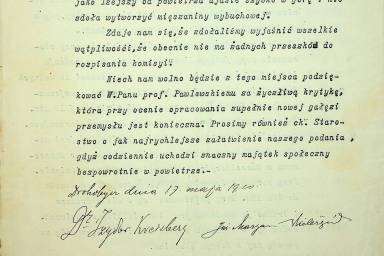 jako lżejszy od powietrza ujdzie szybko w górę i nie
zdoła wytworzyć mięszaniny wybuchowej.
Zdaje nam się, że zdołaliśmy wyjaśnić wszelkie
wątpliwośći, że obecnie nie ma żadnych przeszkód do
rozpisania komisyi.
Niech nam wolno będzie z tego miejsca podzię-
kować W.Panu prof. Pawlewskiemu za życzliwą krytykę,
która przy ocenie opracowania zupełnie nowej gałęzi
przemysłu jest konieczna. Prosimy również ck. Staro-
stwo o jak najrychlejsze załatwienie naszego podania ,
gdyż codziennie uchodzi znaczny majątek społeczny
bezpowrotnie w powietrze.-
Drohobycz dnia 17 maja
Dr Izydor Kreisberg